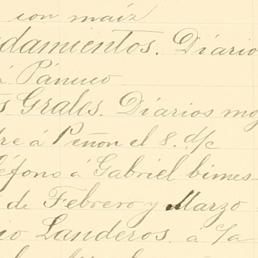 con maíz
damientos. Diario
á Pánuco
s Grales. Diarios mo
re á Peñon el 8. d/c
éfono á Gabriel bimes
de Febrero y Marzo
io Landeros. a/a